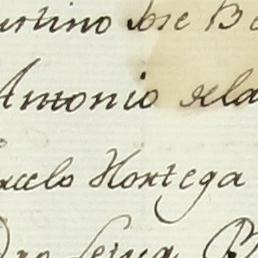 ustino Jose Be
Antonio dela
rcelo Hortega
dro Leiva